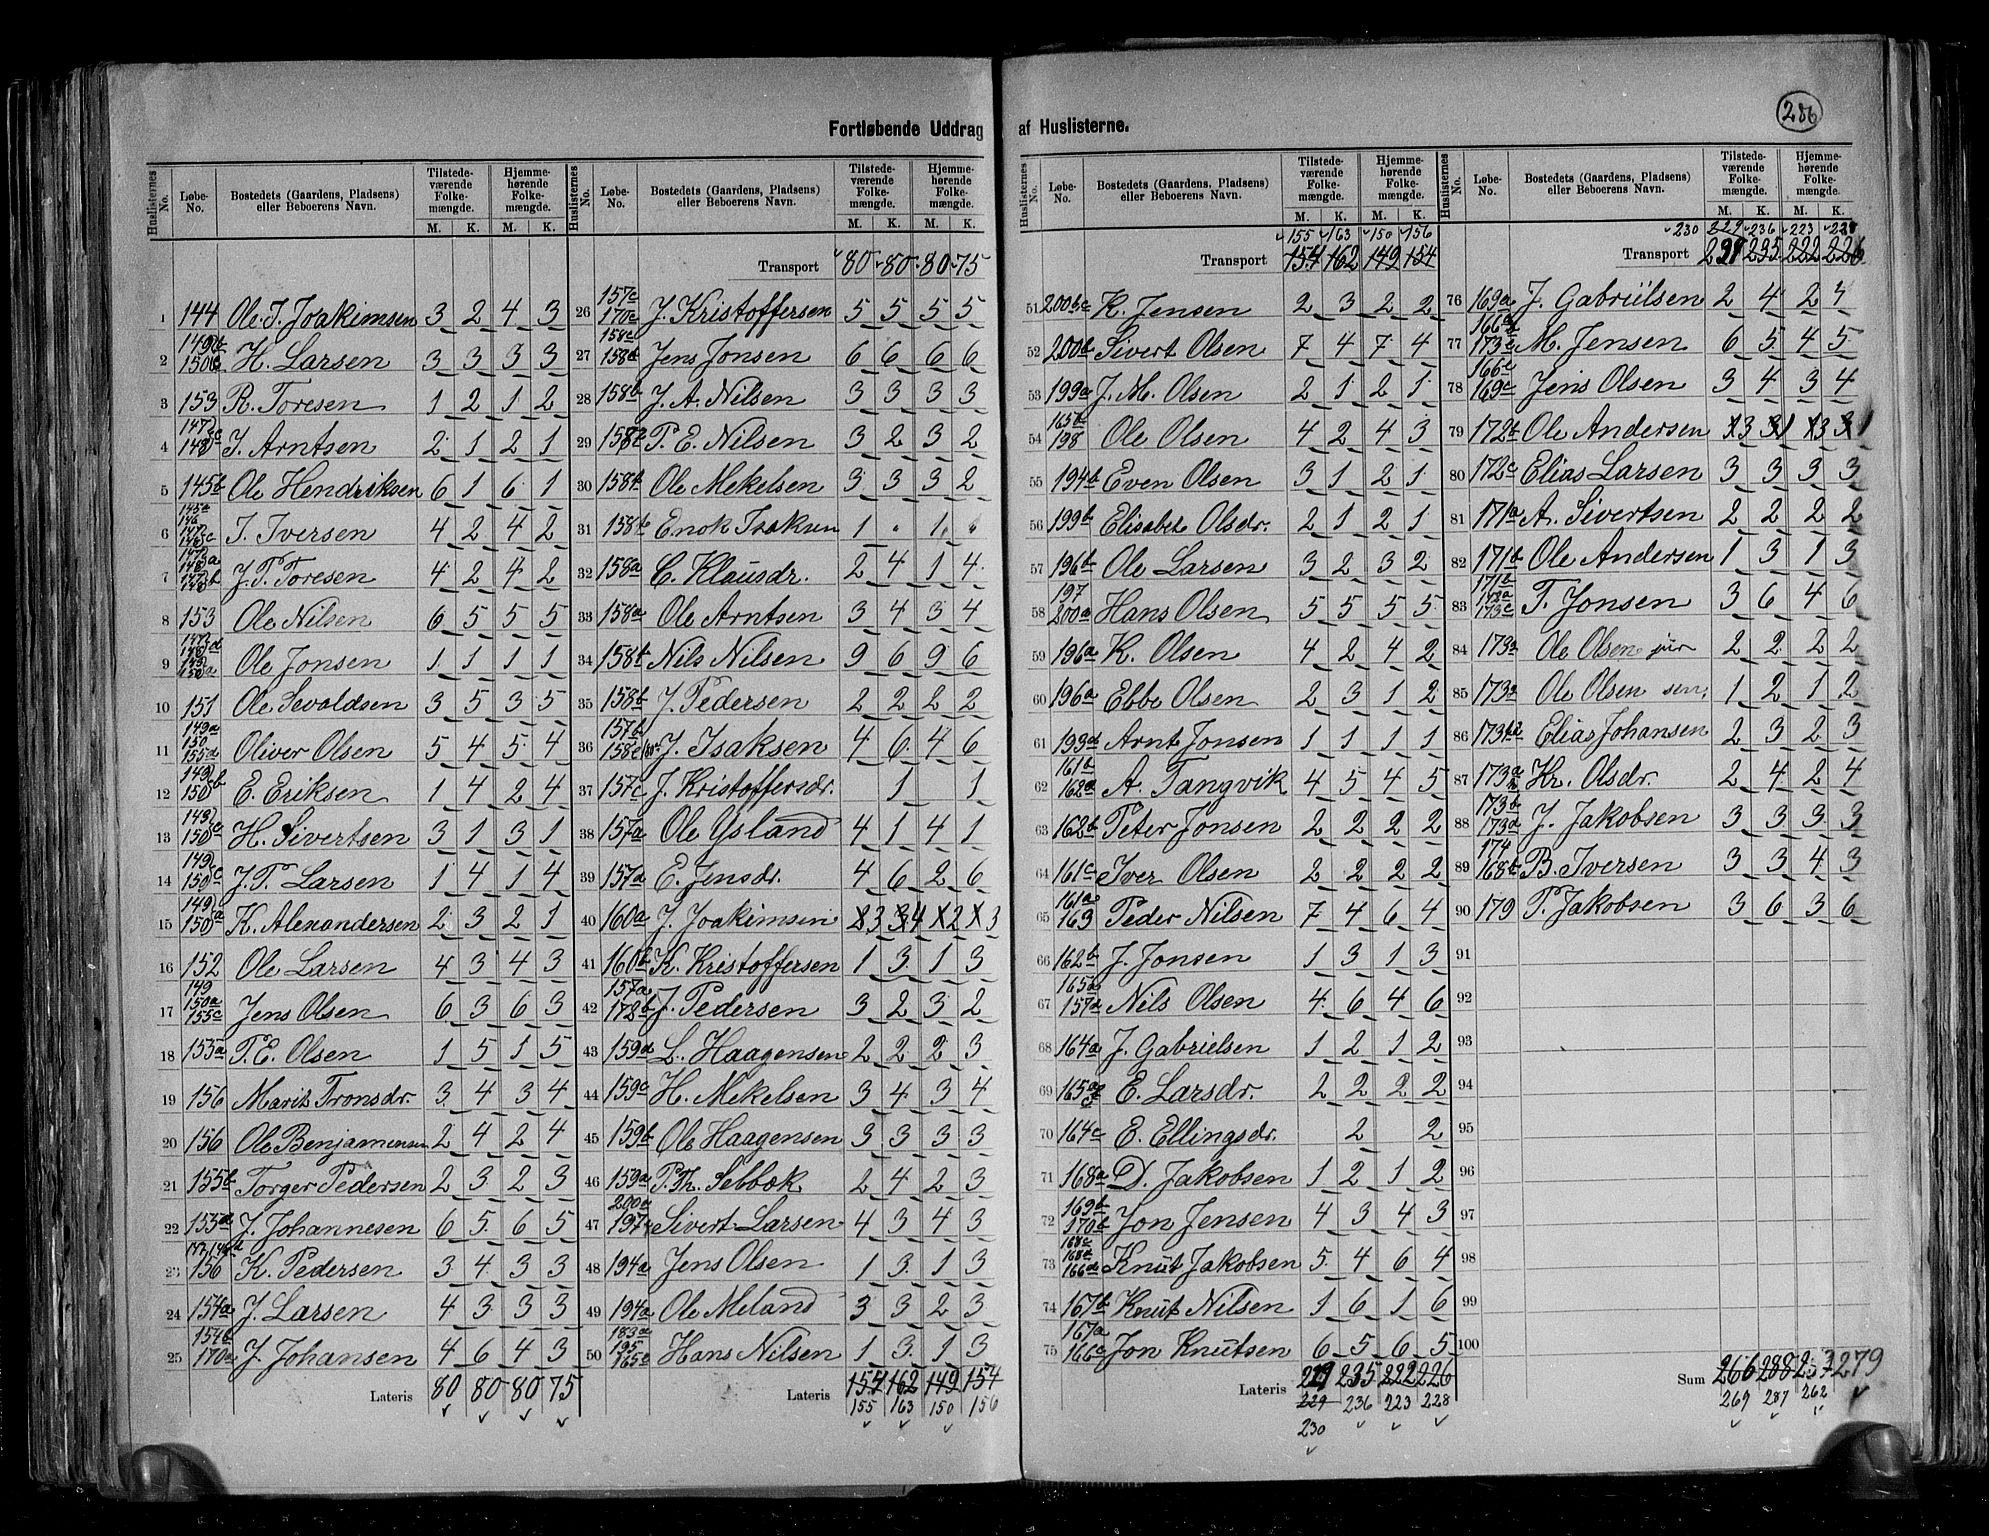 Fortløbende Uddrag af Huslisterne.
286
Huslisternes No. Løbe-No. Bostedets (Gaardens, Pladsens) eller Beboerens Navn. Tilstedeværende Folkemængde. M. K. Hjemmehørende Folkemængde. M. K.
1 144 Ole J. Joakimsen 3 2 4 3
2 H. Larsen 3 3 3 3
3 153 R. Toresen 1 2 1 2
4 J. Arntsen 2 1 2 1
5 145b Ole Hendriksen 6 1 6 1
6 I. Iversen 4 2 4 2
7 J. T. Toresen 4 2 4 2
8 153 Ole Nilsen 6 5 5 5
9 Ole Jonsen 1 1 1 1
10 151 Ole Sevaldsen 3 5 3 5
11 Oliver Olsen 5 4 5 4
12 E. Eriksen 1 4 2 4
13 H. Sivertsen 3 1 3 1
14 J. P. Larsen 1 4 1 4
15 K. Alexandersen 2 3 2 1
16 152 Ole Larsen 4 3 4 3
17 149 150a 155c Jens Olsen 6 3 6 3
18 155a P. E. Olsen 1 5 1 5
19 156 Marit Tronsdr. 3 4 3 4
20 156 Ole Benjaminsen 2 4 2 4
21 155b Torger Pedersen 2 3 2 3
22 155a J. Johannesen 6 5 6 5
23 156 K. Pedersen 3 4 3 3
24 154a J. Larsen 4 3 3 3
25 154b 170a J. Johansen 4 6 4 3
Lateris 80 80 80 75
Huslisternes No. Løbe-No. Bostedets (Gaardens, Pladsens) eller Beboerens Navn. Tilstedeværende Folkemængde. M. K. Hjemmehørende Folkemængde. M. K.
Transport 80 80 80 75
26 157c 170c J. Kristoffersen 5 5 5 5
27 158c 158d Jens Jonsen 6 6 6 6
28 158b J. A. Nilsen 3 3 3 3
29 P. E. Nilsen 3 2 3 2
30 158b Ole Mekelsen 3 3 3 2
31 158b Enok Isaksen 1 " 1 "
32 158a C. Klausdr. 2 4 1 4
33 158a Ole Arntsen 3 4 3 4
34 158b Nils Nilsen 9 6 9 6
35 158b J. Pedersen 2 2 2 2
36 157b J. Isaksen 4 6 4 6
37 157c J. Kristoffersdr. 1 1
38 157a Ole Ysland 4 1 4 1
39 157a E. Jensdr. 4 6 2 6
40 160a J. Joakimsen 3 4 2 3
41 160b K. Kristoffersen 1 3 1 3
42 157a 178b J. Pedersen 3 2 3 2
43 159d L. Haagensen 2 2 2 3
44 159c H. Mekelsen 3 4 3 4
45 159b Ole Haagensen 3 3 3 3
46 159a P. Th. Selbæk 2 4 2 3
47 200a Sivert Larsen 4 3 4 3
48 194a Jens Olsen 1 3 1 3
49 194a Ole Meland 3 3 2 3
50 183a 195 165c Hans Nilsen 1 3 1 3
Lateris 154 162 149 154
155 163 150 156
Huslisternes No. Løbe-No. Bostedets (Gaardens, Pladsens) eller Beboerens Navn. Tilstedeværende Folkemængde. M. K. Hjemmehørende Folkemængde. M. K.
155 163 150 156
Transport 154 162 149 154
51 200bc K. Jensen 2 3 2 2
52 200b Sivert Olsen 7 4 7 4
53 199a J. M. Olsen 2 1 2 1
54 165b 198 Ole Olsen 4 2 4 3
55 194b Even Olsen 3 1 2 1
56 199b Elisabet Olsdr. 2 1 2 1
57 196b Ole Larsen 3 2 3 2
58 197 200a Hans Olsen 5 5 5 5
59 196a K. Olsen 4 2 4 2
60 196a Ebbe Olsen 2 3 1 2
61 Arnt Jonsen 1 1 1 1
62 161b 162a A. Tangvik 4 5 4 5
63 162b Peter Jonsen 2 2 2 2
64 161c Iver Olsen 2 2 2 2
65 161a 163 Peder Nilsen 7 4 6 4
66 162b J. Jonsen 1 3 1 3
67 165a 157d Nils Olsen 4 6 4 6
68 164a J. Gabrielsen 1 2 1 2
69 E. Larsdr. 2 2 2 2
70 164c E. Ellingsdr. 2 2
71 168a D. Jakobsen 1 2 1 2
72 169b 170b Jon Jensen 4 3 4 3
73 168c 168d 166d Knut Jakobsen 5 4 6 4
74 167b Knut Nilsen 1 6 1 6
75 167a 166c Jon Knutsen 6 5 6 5
Lateris 229 235 222 226
229 236 223 228
230
Huslisternes No. Løbe-No. Bostedets (Gaardens, Pladsens) eller Beboerens Navn. Tilstedeværende Folkemængde. M. K. Hjemmehørende Folkemængde. M. K.
230 229 236 223 228
Transport 235 222 226
76 169a J. Gabrielsen 2 4 2 4
77 173c M. Jensen 6 5 4 5
78 166c 169c Jens Olsen 3 4 3 4
79 172b Ole Andersen 3 1 3 1
80 172c Elias Larsen 3 3 3 3
81 171a A. Sivertsen 2 2 2 2
82 171b Ole Andersen 1 3 1 3
83 171b 173c T. Jonsen 3 6 4 6
84 173a Ole Olsen jun 2 2 2 2
85 173a Ole Olsen sen. 1 2 1 2
86 Elias Johansen 2 3 2 3
87 Kr. Olsdr. 2 4 2 4
88 173b 173d J. Jakobsen 3 3 3 3
89 174 168b B. Iversen 3 3 4 3
90 179 P. Jakobsen 3 6 3 6
91
92
93
94
95
96
97
98
99
100
Sum 266 288 257 279
269 287 262